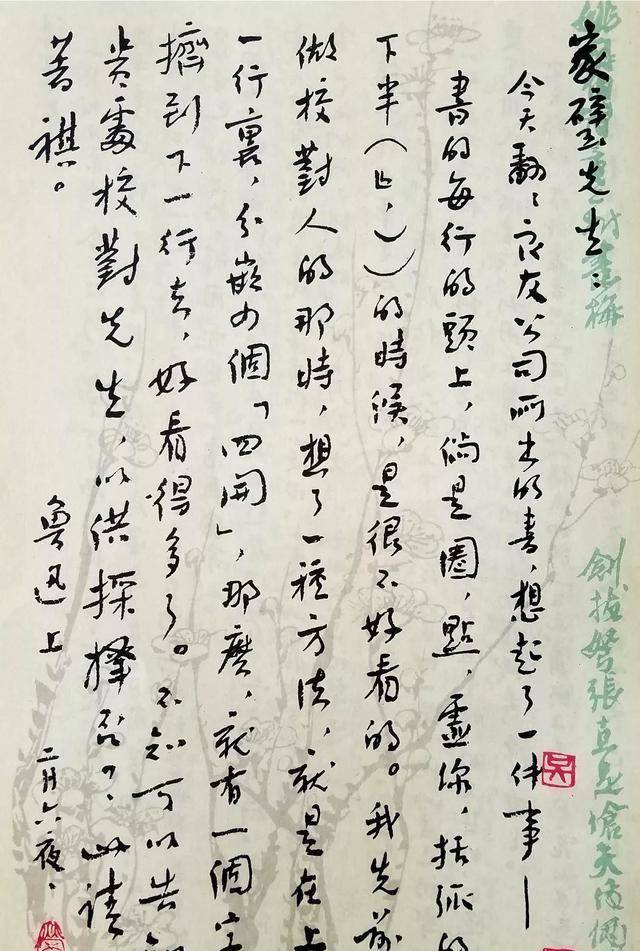 家璧先生：
今天翻〻良友公司所出的書，想起了一件事——
書的每行的頭上，倘是圈，點，虛線，括弧的
下半（』，））的時候，是很不好看的。我先前
做校對人的那時，想了一種方法，就是在上
一行裏，分嵌四個「四開」，那麼，就有一個字
擠到下一行去，好看得多了。不知可以告知
貴處校對先生，以供採擇否？此請
著祺。
魯迅上
二月六夜。